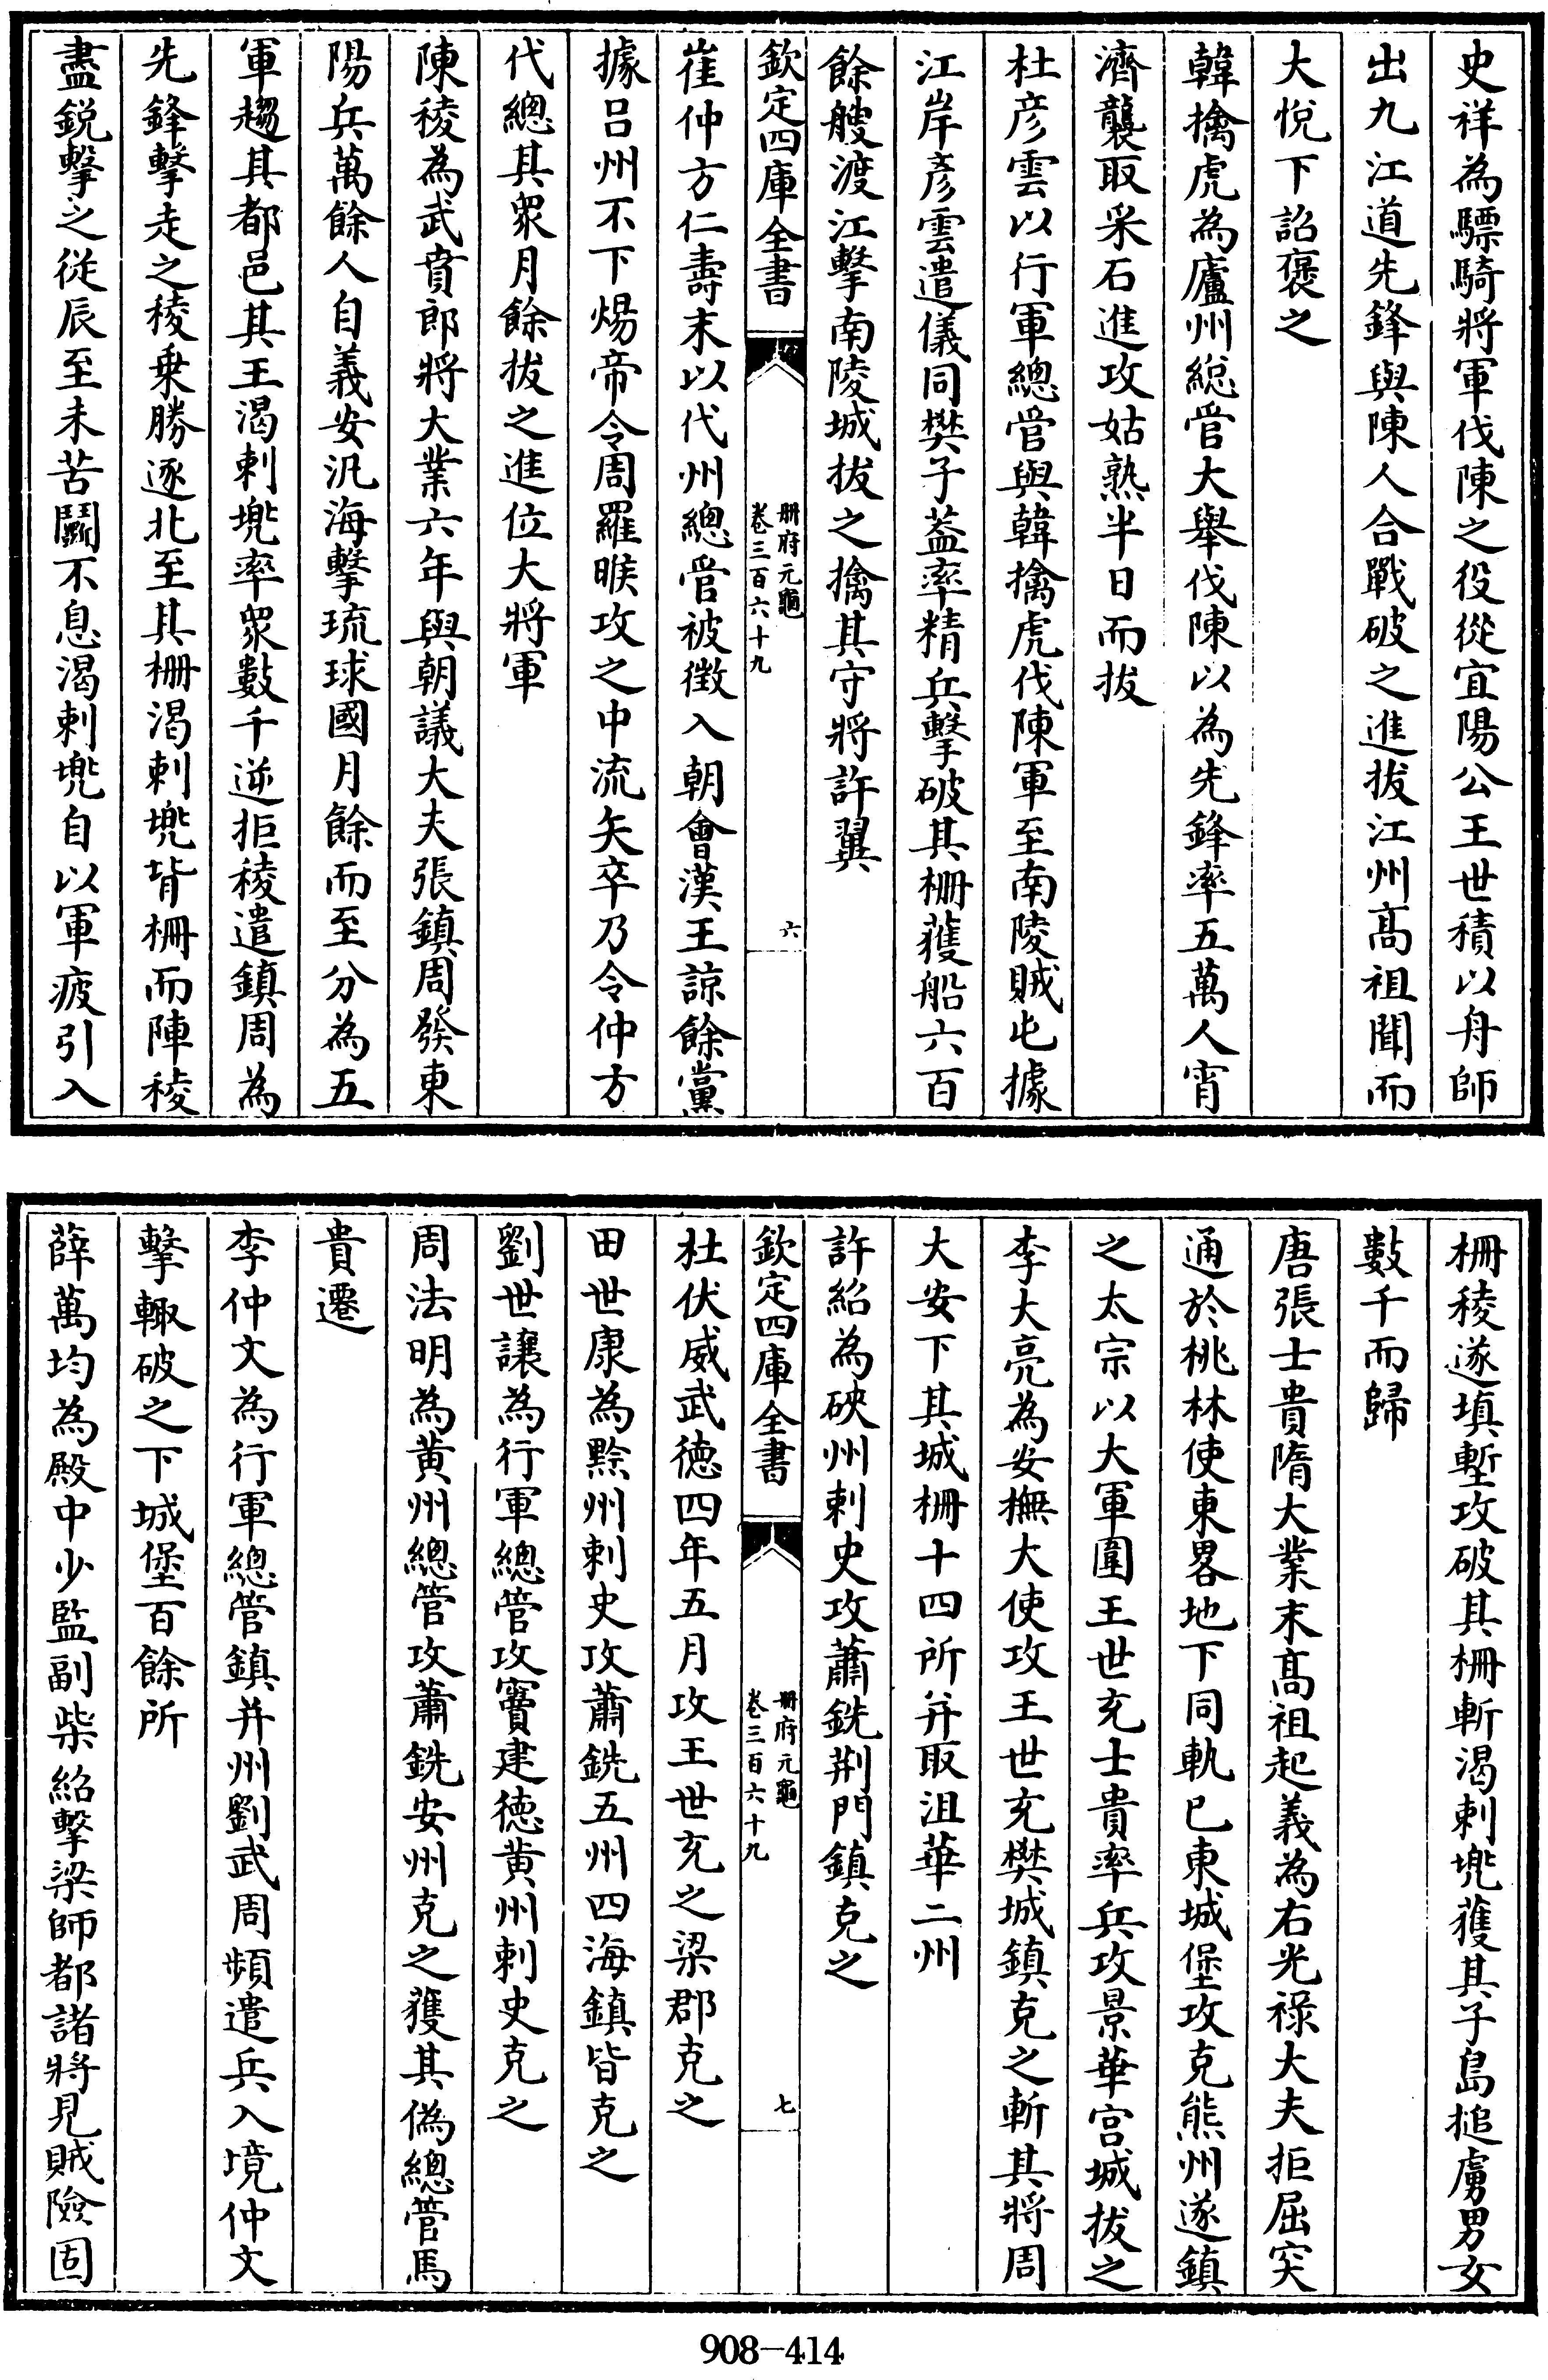 史祥為驃騎將軍伐陳之役從宜陽公王世積以舟師
出九江道先鋒與陳人合戰破之進拔江州髙祖聞而
大悅下詔褒之
韓擒虎為廬州総管大舉伐陳以為先鋒率五萬人宵
濟襲取采石進攻姑熟半日而拔
杜彥雲以行軍總管與韓擒虎伐陳軍至南陵賊屯據
江岸彥雲遣儀同樊子葢率精兵擊破其柵獲船六百
餘艘渡江擊南陵城拔之擒其守將許翼
欽定四庫全書
冊府元龜
卷三百六十九
六
崔仲方仁壽末以代州總管被徵入朝會漢王諒餘黨
據呂州不下煬帝令周羅睺攻之中流矢卒乃令仲方
代總其衆月餘拔之進位大將軍
陳稜為武賁郎將大業六年與朝議大夫張鎮周發東
陽兵萬餘人自義安汎海擊琉球國月餘而至分為五
軍趨其都邑其王渴剌兜率衆數千逆拒稜遣鎮周為
先鋒擊走之稜乗勝逐北至其柵渴剌兜背柵而陣稜
盡銳擊之從辰至未苦鬭不息渴剌兜自以軍疲引入
柵稜遂填塹攻破其柵斬渴剌兜獲其子島搥虜男女
數千而歸
唐張士貴隋大業末髙祖起義為右光祿大夫拒屈突
通於桃林使東畧地下同軌已東城堡攻克熊州遂鎮
之太宗以大軍圍王世充士貴率兵攻景華宮城拔之
李大亮為安撫大使攻王世充樊城鎮克之斬其將周
大安下其城柵十四所并取沮華二州
許紹為硤州刺史攻蕭銑荆門鎮克之
欽定四庫全書
冊府元龜
卷三百六十九
七
杜伏威武徳四年五月攻王世充之梁郡克之
田世康為黔州刺史攻蕭銑五州四海鎮皆克之
劉世讓為行軍總管攻竇建徳黄州刺史克之
周法明為黄州總管攻蕭銑安州克之獲其偽總管馬
貴遷
李仲文為行軍總管鎮并州劉武周頻遣兵入境仲文
擊輙破之下城堡百餘所
薛萬均為殿中少監副柴紹擊梁師都諸將見賊險固
908-414